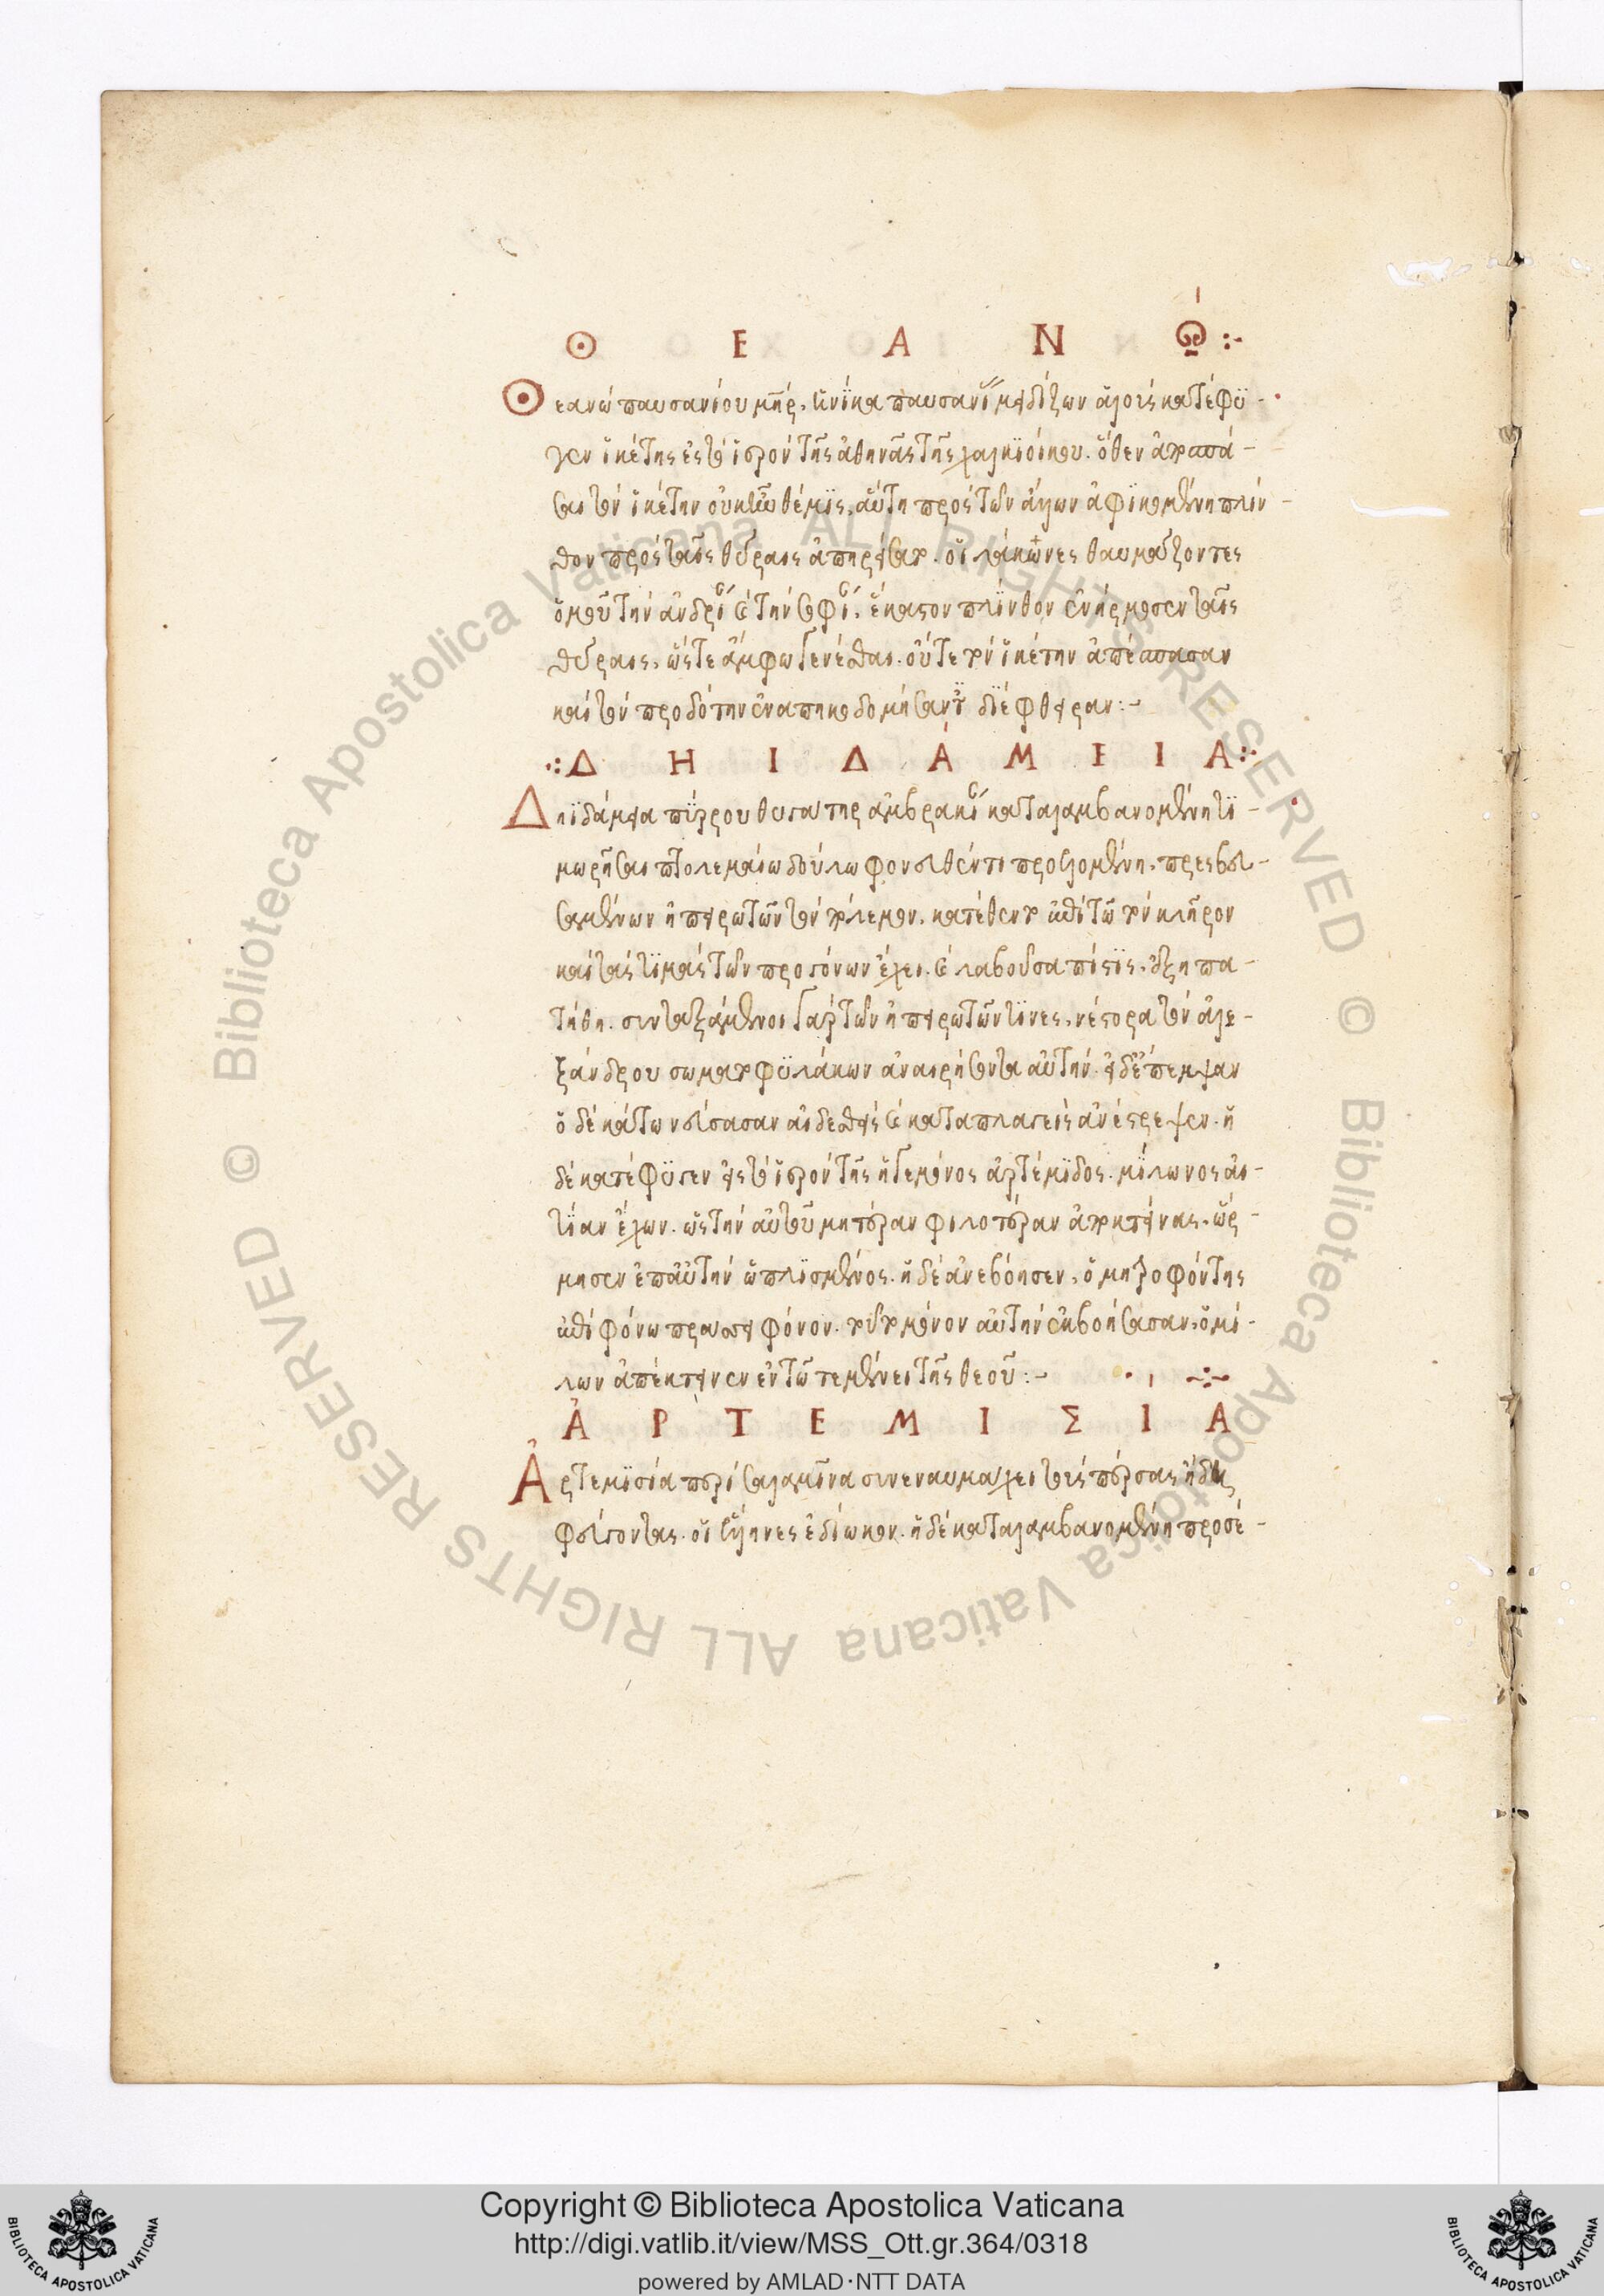 Θ Ε Α Ν Ώ :-
Θεανώ παυσανίου μῆηρ, ἡνίκα παυσανίας μηδίζων ἁλοὺς κατέφυ-
γεν ἱκέτης ἐς τὸ ἱερὸν τῆς ἀθηνᾶς τῆς χαλκιοίκου. ὅθεν ἀποσπά-
σαι τὸν ἱκέτην οὐκ ἦν θέμις, αὕτη πρὸς τῶν ἄλλων ἀφικομένη πλίν-
θον πρὸς ταῖς θύραις ἀπηρείσατο. οἱ λάκωνες θαυμάζοντες
ὁμοῦ τὴν ἀνδρίαν καὶ τὴν σοφίαν, ἕκαστον πλίνθον ἐνήρμοσεν ταῖς
θύραις, ὥστε ἄμφω γενέσθαι. οὔτε τὸν ἱκέτην ἀπέσπασαν
καὶ τὸν προδότην ἐναπηκοδομήσαντο διέφθειραν :-
∴ Δ Η Ι Δ Ά Μ Ε Ι Α :-
Δηϊδάμεια πύρρου θυγάτηρ ἀμβρακίαν καταλαμβανομένη τι-
μωρῆσαι πτολεμαίω δούλω φονευθέντι προελομένη, πρεσβευ-
σαμένων ἠπειρωτῶν τὸν πόλεμον, κατέθεντο ἐπὶ τῶ τὸν κλῆρον
καὶ τὰς τιμὰς τῶν προγόνων ἔχει. καὶ λαβοῦσα πίστις, ἐξηπα-
τήθη. συνταξάμενοι γὰρ τῶν ἠπειρωτῶν τινες, νέστορα τὸν ἀλε-
ξάνδρου σωματοφυλάκων ἀναιρήσοντα αὐτὴν εἰσέπεμψαν
ὁ δὲ κάτω νεύσασαν αἰδεσθεὶς καὶ καταπλαγεὶς ἀνέστρεψεν. ἡ
δὲ κατέφυγεν εἰς τὸ ἱερὸν τῆς ἡγεμόνος ἀρτέμιδος. μίλωνος αἰ-
τίαν ἔχων. ὡς τὴν αὐτοῦ μητέραν φιλοτέραν ἀποκτείνας, ὥρ-
μησεν ἐπαὐτὴν ὡπλισμένος. ἡ δὲ ἀνεβόησεν, ὁ μητροφόντης
ἐπὶ φόνω πράττει φόνον. τοῦτο μόνον αὐτὴν ἐκβοήσασαν, ὁ μί-
λων ἀπέκτεινεν ἐν τῶ τεμένει τῆς θεοῦ :-
Ἀ Ρ Τ Ε Μ Ι Σ Ί Α
Ἀρτεμισία περὶ σαλαμῖνα συνεναυμάχει τοὺς πέρσας ἤδη
φεύγοντας. οἱ ἕλληνες ἐδίωκον. ἡ δὲ καταλαμβανομένη προσέ-
Copyright © Biblioteca Apostolica Vaticana
http://digi.vatlib.it/view/MSS_Ott.gr.364/0318
powered by AMLAD·NTT DATA